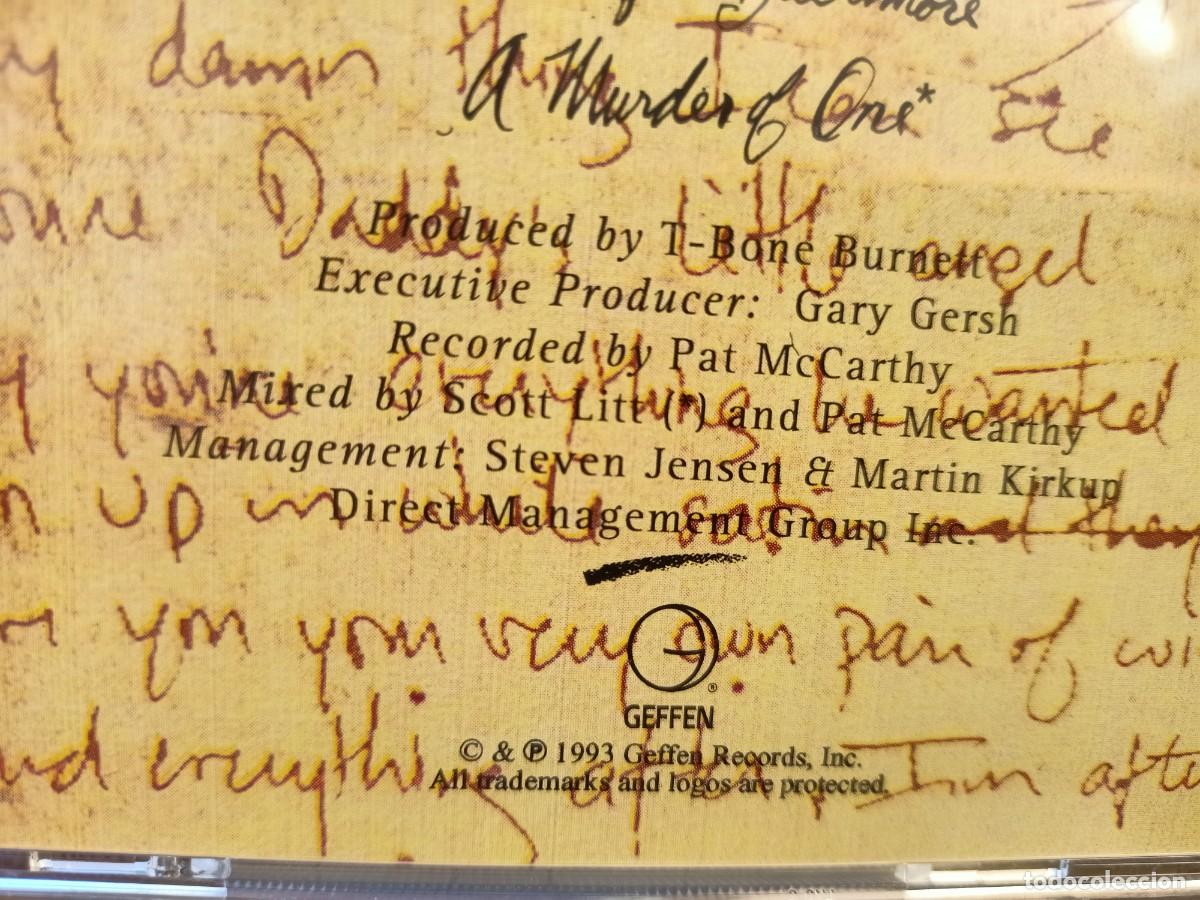 A Murder of One*
damn thing I can see
Daddy's little angel
Produced by T-Bone Burnett
Executive Producer: Gary Gersh
Recorded by Pat McCarthy
you're everything he wanted
Mixed by Scott Litt (*) and Pat McCarthy
Management: Steven Jensen & Martin Kirkup
up in
Direct Management Group Inc.
you your very own pair of
GEFFEN
everything after, I'm after
© & ℗ 1993 Geffen Records, Inc.
All trademarks and logos are protected.
todocoleccion